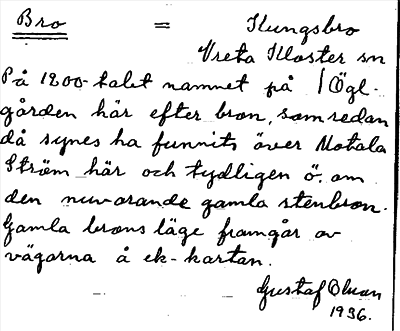 Bro = Kungsbro
Vreta Kloster sn
På 1200-talet namnet på / Ögl-
gården här efter bron, som redan
då synes ha funnits över Motala
Ström här och tydligen ö. om
den nuvarande gamla stenbron.
Gamla brons läge framgår av
vägarna å ek-kartan.
Gustaf
1936.